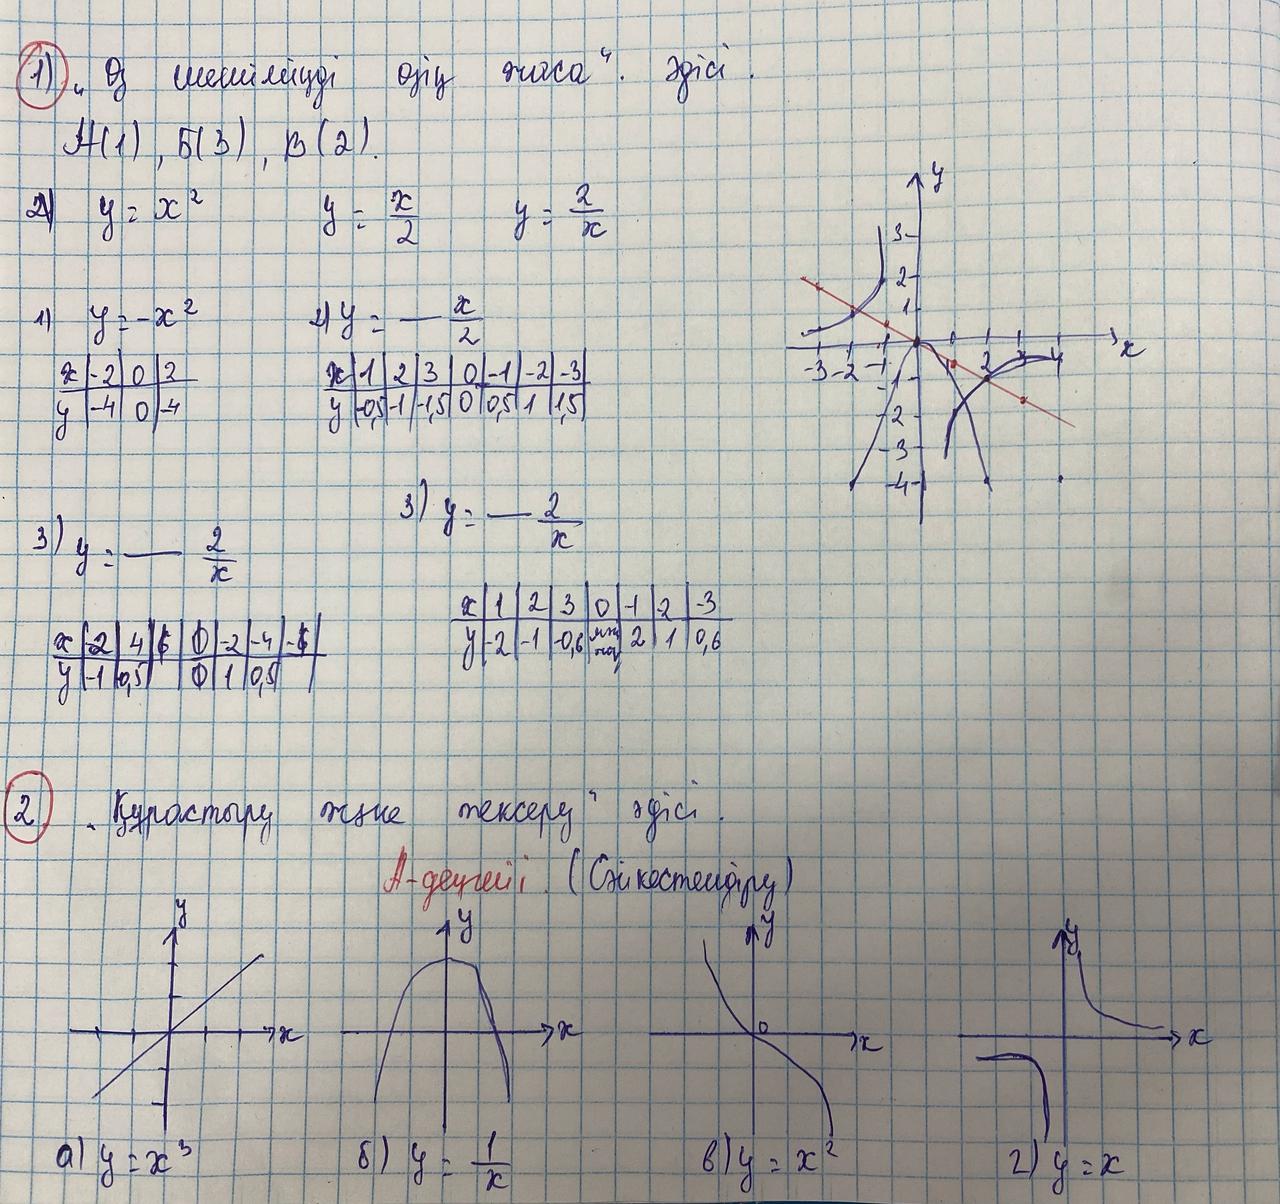 1) „Өз шешіміңді өзің жаса“. әдісі.
А(1), Б(3), В(2).
2) y = x²   y = x/2   y = 2/x
1) y = -x²   2) y = - x/2
x | -2 | 0 | 2
y | -4 | 0 | -4
x | 1 | 2 | 3 | 0 | -1 | -2 | -3
y | -0,5 | -1 | -1,5 | 0 | 0,5 | 1 | 1,5
y
3
2
1
-3 -2 -1 1 2 3 4 x
-1
-2
-3
-4
3) y = - 2/x
3) y = - 2/x
x | -2 | 4 | 6 | 0 | -2 | -4 | -6
y | -1 | 0,5 | | 0 | 1 | 0,5 |
x | 1 | 2 | 3 | 0 | -1 | -2 | -3
y | -2 | -1 | -0,6 | | 2 | 1 | 0,6
2. „Құрастыру және тексеру“ әдісі.
А-деңгейі. (Сәйкестендіру)
y   y   y   y
x   x   0 x   x
а) y = x³   б) y = 1/x   в) y = x²   г) y = x